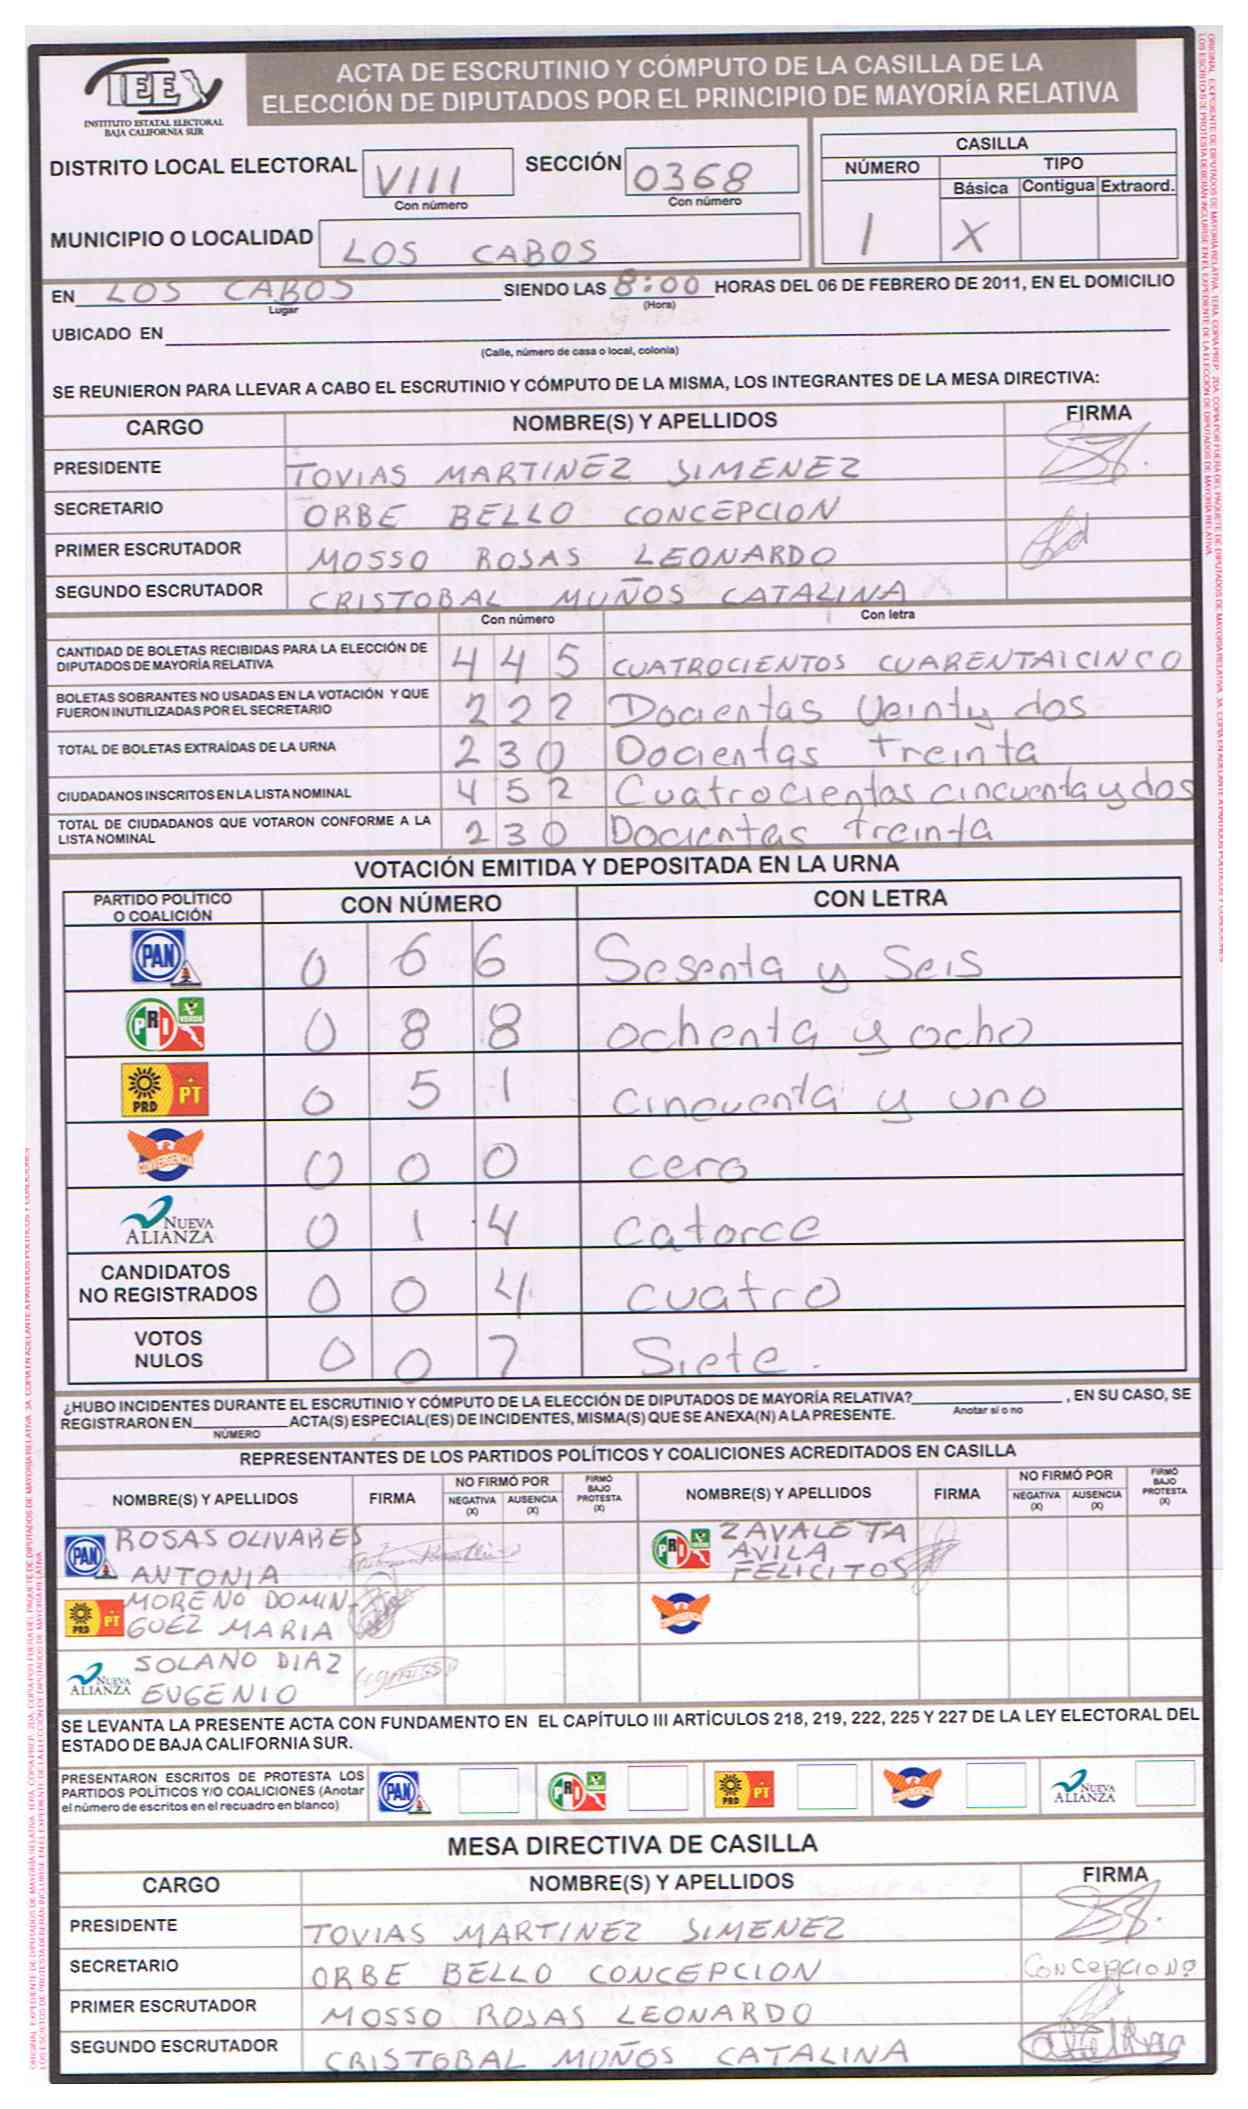 IEE
INSTITUTO ESTATAL ELECTORAL
BAJA CALIFORNIA SUR
ACTA DE ESCRUTINIO Y CÓMPUTO DE LA CASILLA DE LA
ELECCIÓN DE DIPUTADOS POR EL PRINCIPIO DE MAYORÍA RELATIVA
DISTRITO LOCAL ELECTORAL VIII SECCIÓN 0368
Con número Con número
MUNICIPIO O LOCALIDAD LOS CABOS
CASILLA
NÚMERO TIPO
Básica Contigua Extraord.
1 X
EN LOS CABOS SIENDO LAS 8:00 HORAS DEL 06 DE FEBRERO DE 2011, EN EL DOMICILIO
Lugar (Hora)
UBICADO EN
(Calle, número de casa o local, colonia)
SE REUNIERON PARA LLEVAR A CABO EL ESCRUTINIO Y CÓMPUTO DE LA MISMA, LOS INTEGRANTES DE LA MESA DIRECTIVA:
CARGO NOMBRE(S) Y APELLIDOS FIRMA
PRESIDENTE TOVIAS MARTINEZ SIMENEZ
SECRETARIO ORBE BELLO CONCEPCION
PRIMER ESCRUTADOR MOSSO ROSAS LEONARDO
SEGUNDO ESCRUTADOR CRISTOBAL MUÑOS CATALINA
Con número Con letra
CANTIDAD DE BOLETAS RECIBIDAS PARA LA ELECCIÓN DE
DIPUTADOS DE MAYORÍA RELATIVA 445 CUATROCIENTOS CUARENTAICINCO
BOLETAS SOBRANTES NO USADAS EN LA VOTACIÓN Y QUE
FUERON INUTILIZADAS POR EL SECRETARIO 222 Docientas Veinty dos
TOTAL DE BOLETAS EXTRAÍDAS DE LA URNA 230 Docientas treinta
CIUDADANOS INSCRITOS EN LA LISTA NOMINAL 452 Cuatrocientos cincuenta y dos
TOTAL DE CIUDADANOS QUE VOTARON CONFORME A LA
LISTA NOMINAL 230 Docientas treinta
VOTACIÓN EMITIDA Y DEPOSITADA EN LA URNA
PARTIDO POLÍTICO
O COALICIÓN CON NÚMERO CON LETRA
PAN 066 Sesenta y Seis
PRI VERDE 088 ochenta y ocho
PRD PT 051 cincuenta y uno
CONVERGENCIA 000 cero
NUEVA ALIANZA 014 catorce
CANDIDATOS
NO REGISTRADOS 004 cuatro
VOTOS
NULOS 007 Siete.
¿HUBO INCIDENTES DURANTE EL ESCRUTINIO Y CÓMPUTO DE LA ELECCIÓN DE DIPUTADOS DE MAYORÍA RELATIVA? , EN SU CASO, SE
Anotar si o no
REGISTRARON EN ACTA(S) ESPECIAL(ES) DE INCIDENTES, MISMA(S) QUE SE ANEXA(N) A LA PRESENTE.
NÚMERO
REPRESENTANTES DE LOS PARTIDOS POLÍTICOS Y COALICIONES ACREDITADOS EN CASILLA
NOMBRE(S) Y APELLIDOS FIRMA NO FIRMÓ POR NEGATIVA (X) AUSENCIA (X) FIRMÓ BAJO PROTESTA (X) NOMBRE(S) Y APELLIDOS FIRMA NO FIRMÓ POR NEGATIVA (X) AUSENCIA (X) FIRMÓ BAJO PROTESTA (X)
PAN ROSAS OLIVARES
ANTONIA
PRI VERDE ZAVALETA
AVILA
FELICITOS
PRD PT MORENO DOMIN-
GUEZ MARIA
NUEVA ALIANZA SOLANO DIAZ
EUGENIO
SE LEVANTA LA PRESENTE ACTA CON FUNDAMENTO EN EL CAPÍTULO III ARTÍCULOS 218, 219, 222, 225 Y 227 DE LA LEY ELECTORAL DEL
ESTADO DE BAJA CALIFORNIA SUR.
PRESENTARON ESCRITOS DE PROTESTA LOS
PARTIDOS POLÍTICOS Y/O COALICIONES (Anotar
el número de escritos en el recuadro en blanco)
PAN PRI PRD PT NUEVA ALIANZA
MESA DIRECTIVA DE CASILLA
CARGO NOMBRE(S) Y APELLIDOS FIRMA
PRESIDENTE TOVIAS MARTINEZ SIMENEZ
SECRETARIO ORBE BELLO CONCEPCION
PRIMER ESCRUTADOR MOSSO ROSAS LEONARDO
SEGUNDO ESCRUTADOR CRISTOBAL MUÑOS CATALINA